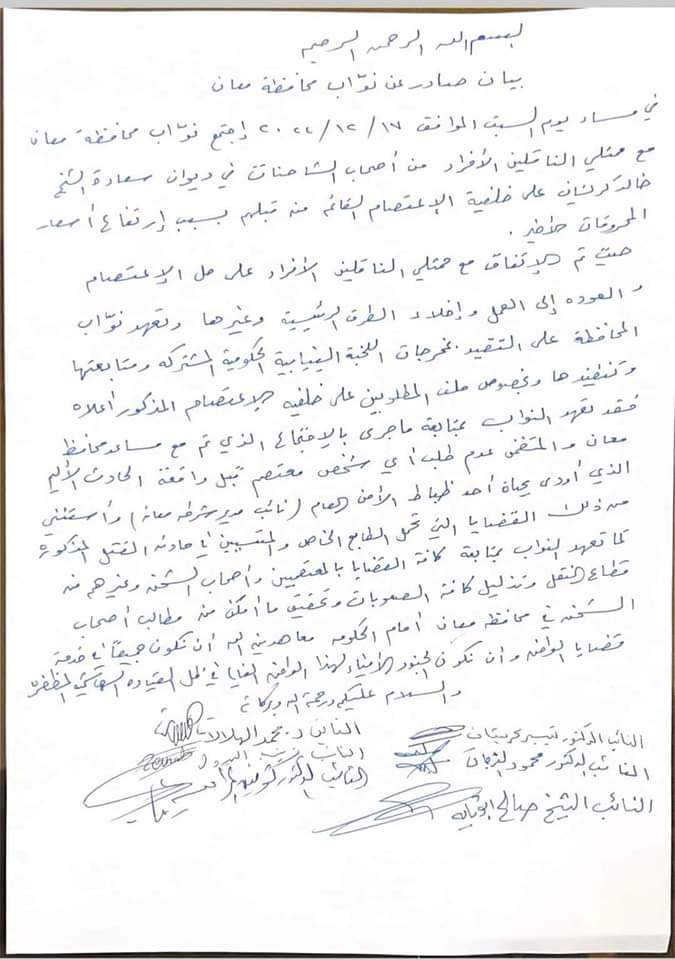 بسم الله الرحمن الرحيم
بيان صادر عن نوّاب محافظة معان
في مساء يوم السبت الموافق ١٧/١٢/٢٠٢٢ إجتمع نوّاب محافظة معان
مع ممثلي الناقلين الأفراد من أصحاب الشاحنات في ديوان سعادة الشيخ
خالد كريشان على خلفية الإعتصام القائم من قبلهم بسبب إرتفاع أسعار
المحروقات
حيث تم الإتفاق مع ممثلي الناقلين الأفراد على حل الإعتصام
والعوده إلى العمل وإخلاء الطرق الرئيسية وغيرها وتعهد نوّاب
المحافظة على التقيد بمخرجات اللجنة النيابية الحكومية المشتركه ومتابعتها
وتنفيذها وبخصوص ملف المطلوبين على خلفيه الإعتصام المذكور أعلاه
فقد تعهد النواب بمتابعة ماجرى بالإجتماع الذي تم مع مساعد محافظ
معان والمتضمن عدم طلب أي شخص معتصم قبل واقعة الحادث الأليم
الذي أودى بحياة أحد ظباط الأمن العام (نائب مدير شرطه معان) وأستثني
من ذلك القضايا التي تحمل الطابع الخاص والمتسببين في حادثه القتل المذكورة
كما تعهد النواب بمتابعة كافة القضايا بالمعتصمين وأصحاب الشحن وغيرهم من
قطاع النقل وتذليل كافة الصعوبات وتحقيق ما أمكن من مطالب أصحاب
الشحن في محافظة معان أمام الحكومه معاهدين الله أن نكون جميعاً في خدمة
قضايا الوطن وأن نكون الجنود الأمناء لهذا الوطن الغالي في ظل القياده الهاشمية المظفره
والسلام عليكم ورحمة الله وبركاته
النائب الدكتور تيسير كريشان
النائب د. محمد الهلالات
النائب الدكتور محمود
النائب
النائب الدكتور
النائب الشيخ صالح ابوتايه